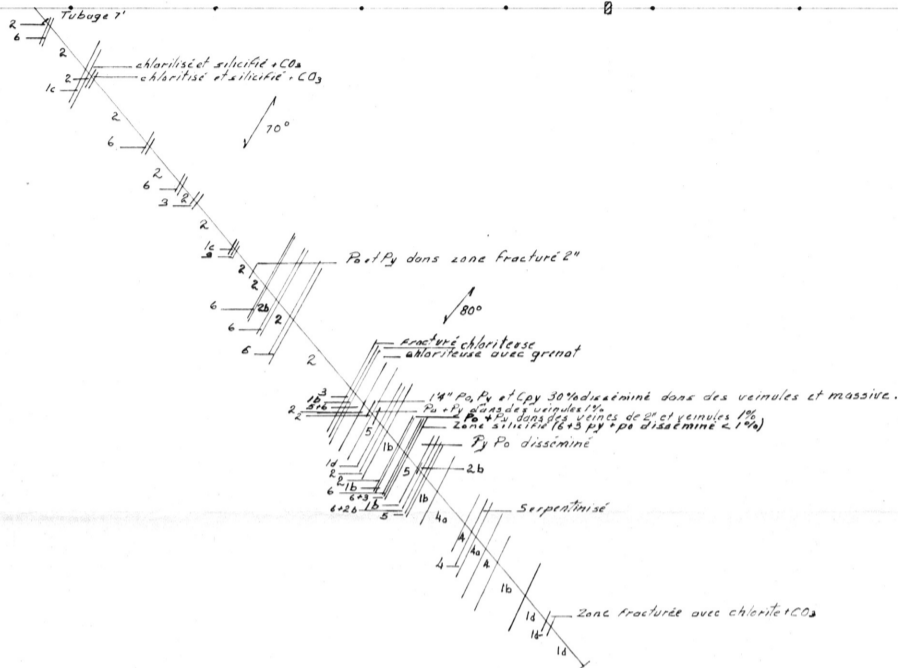 Tubage 7'
2
6
2
chlorilisé et silicifié + CO3
chloritisé et silicifié - CO3
2
1c
70°
2
6
2
6
2
3
2
1c
2
Po et Py dans zone fracturé 2"
2
6
2b
80°
2
6
6
2
fracturé chloriteuse
chloriteuse avec grenat
3
1b
5+6
2
2
1'4" Po, Py et Cpy 30% disséminé dans des veinules et massive.
Po + Py dans des veinules 1%
Po + Py dans des veines de 2" et veinules 1%
Zone silicifié (6+3 py + po disséminé < 1%)
5
Py Po disséminé
1b
1d
2
5
2b
2
1b
6
6+3
1b
1b
6+2b
5
4a
Serpentinisé
4
4a
4
4
1b
Zone fracturée avec chlorite + CO3
1d
1d
1d